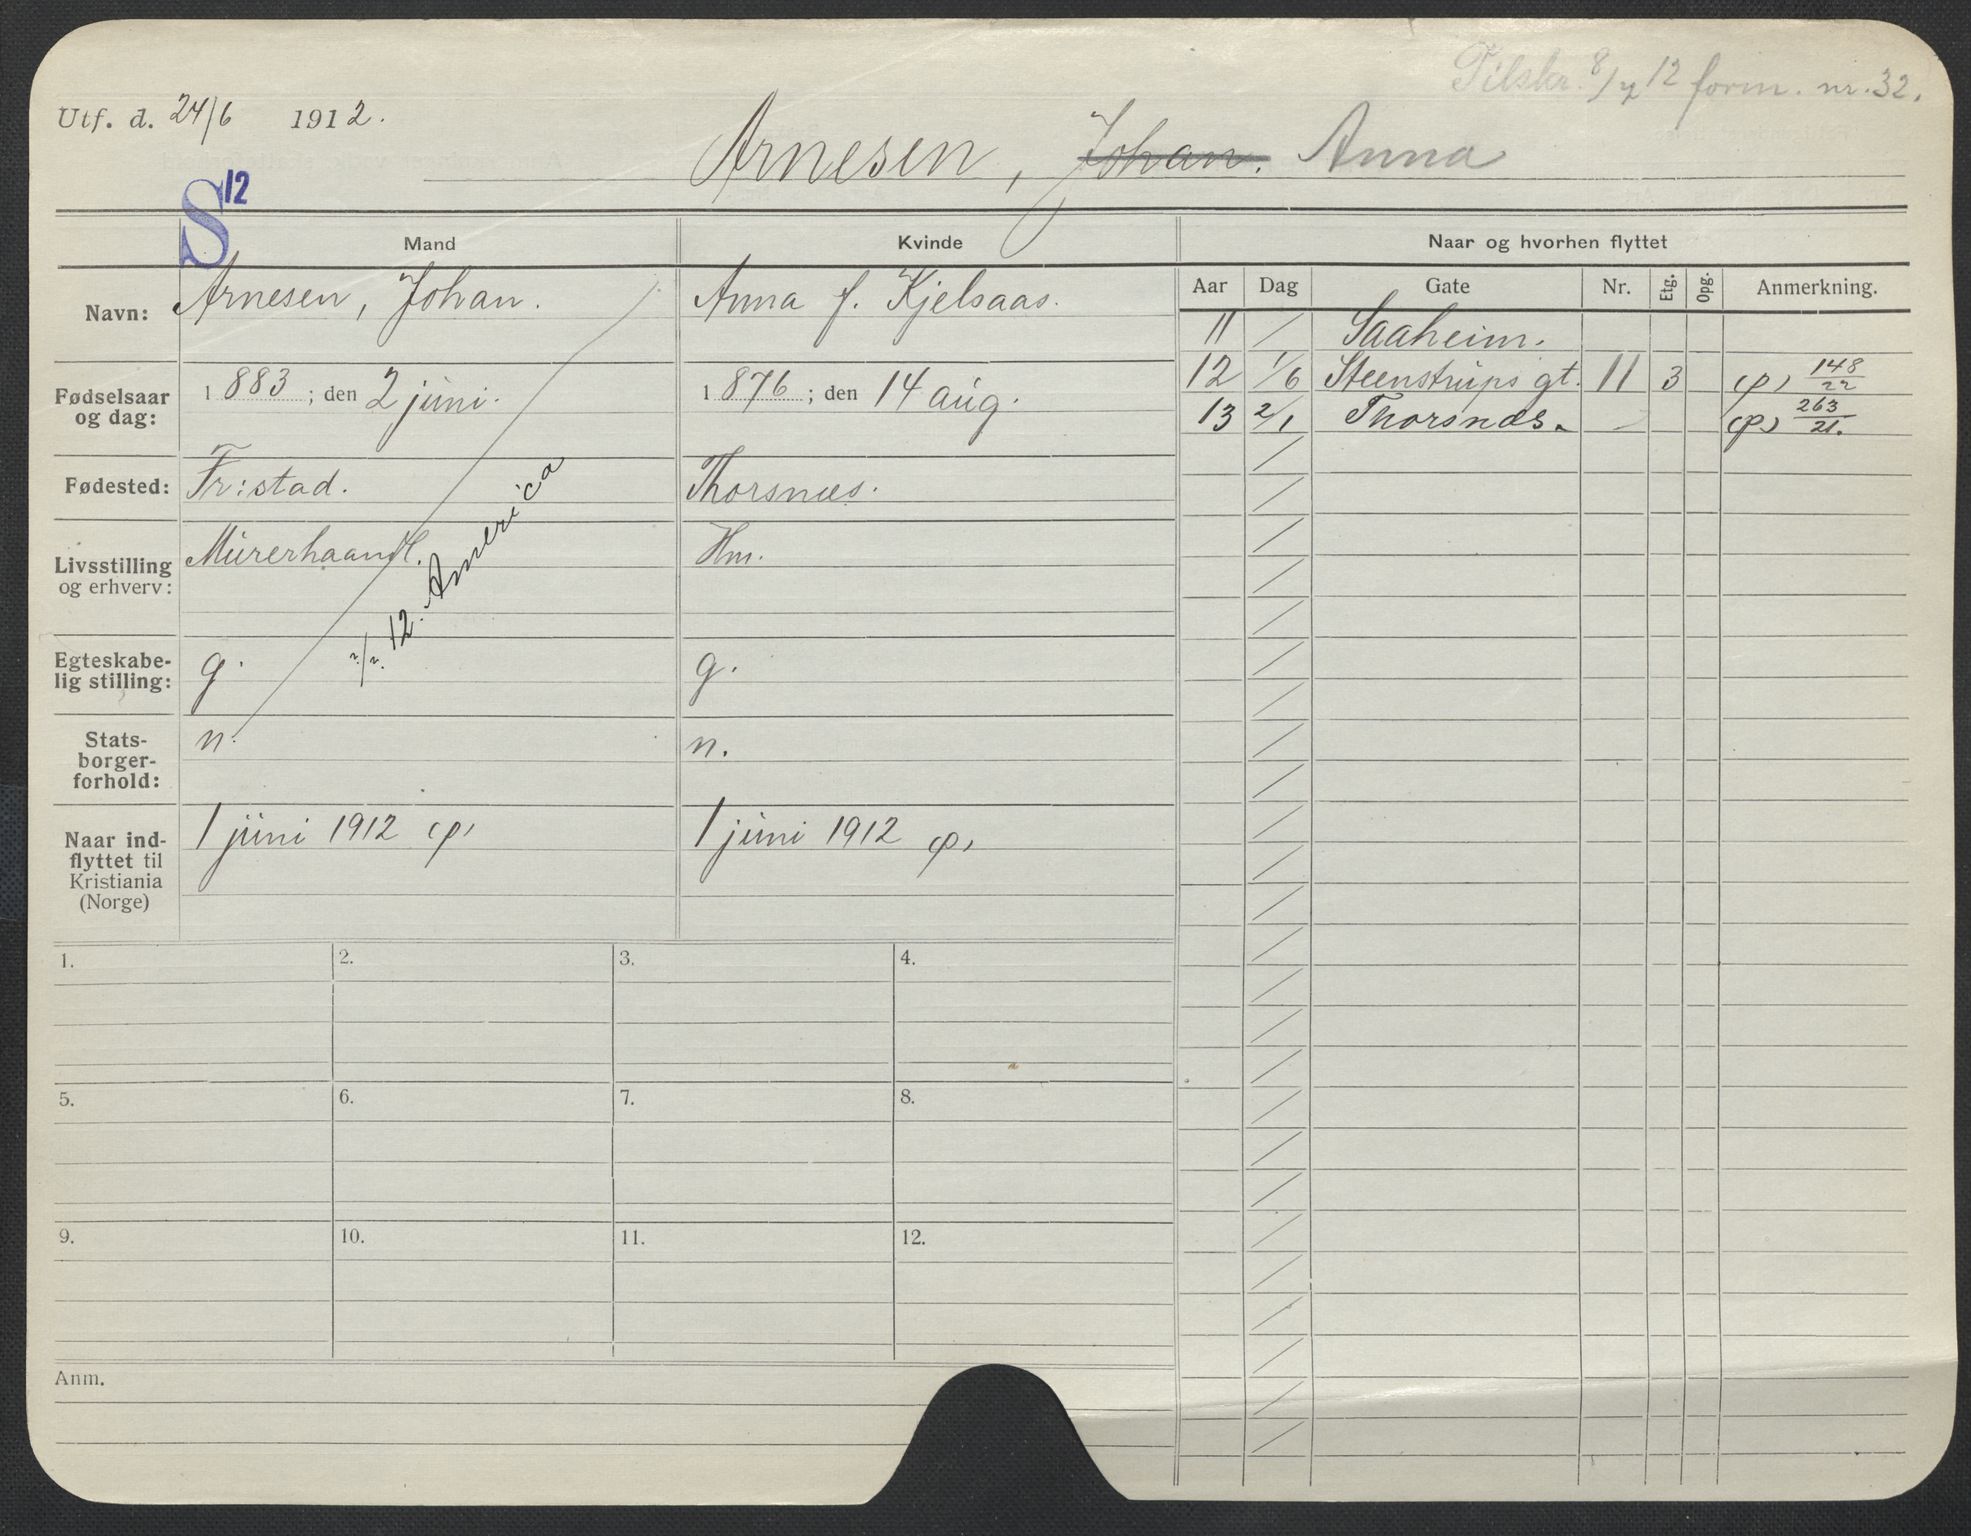 Utf. d. 24/6 1912.
Tilskr. 8/7 12 form. nr. 32.
Arnesen, Johan. Anna
S 12
Mand
Kvinde
Naar og hvorhen flyttet
Navn:
Arnesen, Johan.
Anna f. Kjelsaas.
Aar Dag Gate Nr. Etg. Opg. Anmerkning.
11 / Saaheim.
12 1/6 Steenstrups gt. 11 3 (p) 148/22
13 2/1 Thorsnæs. (p) 263/21.
Fødselsaar og dag:
1883; den 2 juni.
1876; den 14 aug.
Fødested:
Fr:stad.
Thorsnæs.
Livsstilling
og erhverv:
Murerhaandl.
Hm.
12. America
Egteskabe-
lig stilling:
g.
g.
Stats-
borger-
forhold:
n.
n.
Naar ind-
flyttet til
Kristiania
(Norge)
1 juni 1912 (p)
1 juni 1912 (p)
1. 2. 3. 4.
5. 6. 7. 8.
9. 10. 11. 12.
Anm.